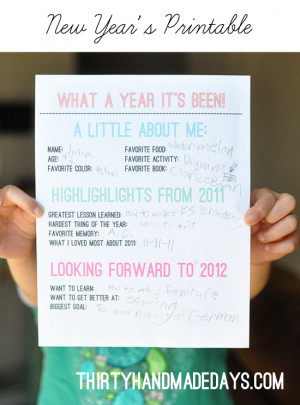 New Year's Printable
WHAT A YEAR IT'S BEEN!
A LITTLE ABOUT ME:
NAME: Julia FAVORITE FOOD: water melon
AGE: FAVORITE ACTIVITY: Drawing
FAVORITE COLOR: blue FAVORITE BOOK:
HIGHLIGHLIGHTS FROM 2011
GREATEST LESSON LEARNED: how to
HARDEST THING OF THE YEAR: how to knit
FAVORITE MEMORY:
WHAT I LOVED MOST ABOUT 2011: 11-11-11
LOOKING FORWARD TO 2012
WANT TO LEARN: how to make furniture
WANT TO GET BETTER AT: sewing
BIGGEST GOAL: To German
THIRTYHANDMADEDAYS.COM